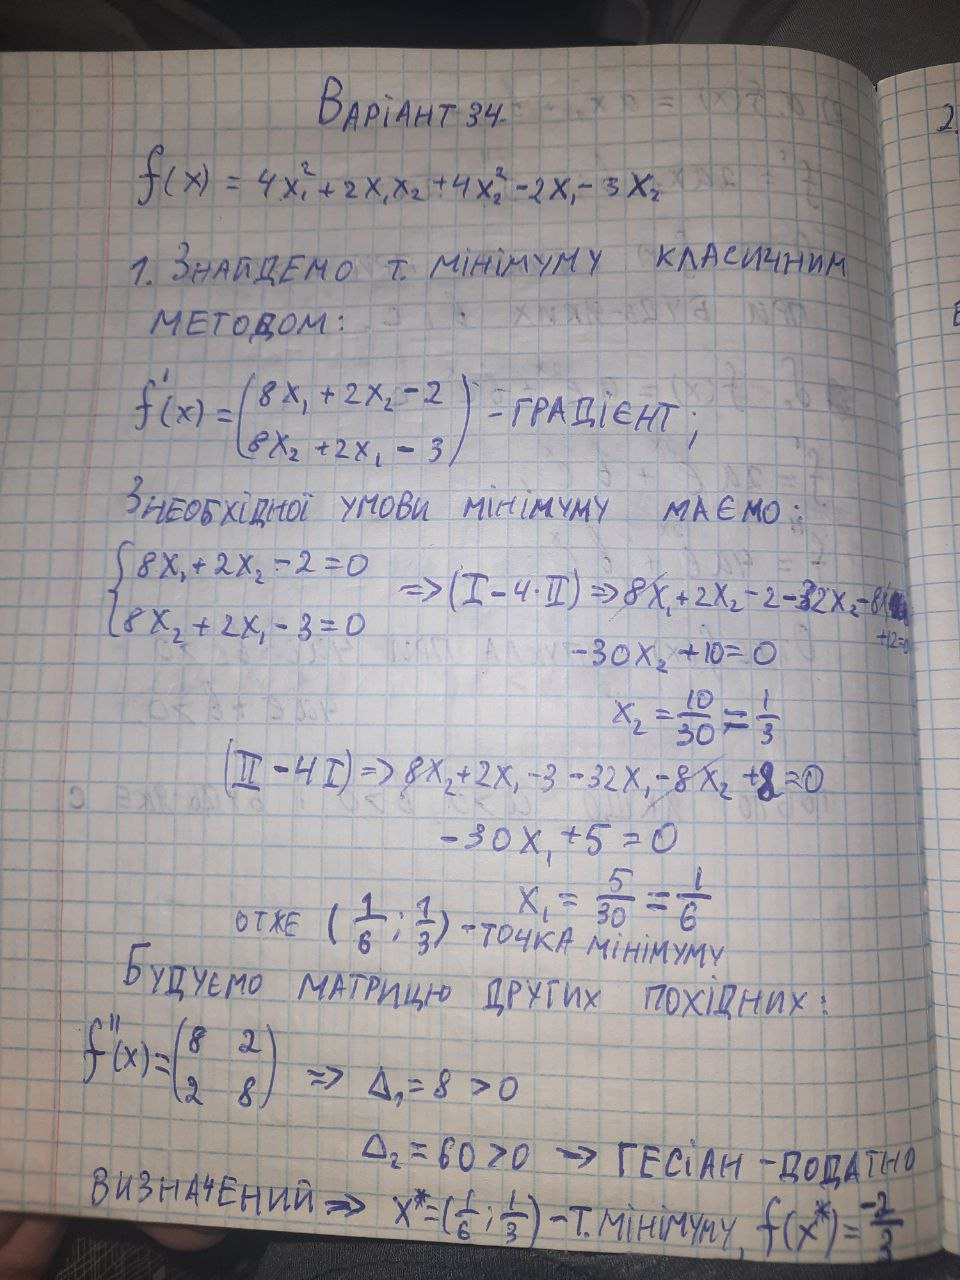 Варіант 34.
f(x) = 4x₁² + 2x₁x₂ + 4x₂² - 2x₁ - 3x₂
1. Знайдемо т. мінімуму класичним
методом:
f'(x) = (8x₁ + 2x₂ - 2
8x₂ + 2x₁ - 3) - градієнт;
З необхідної умови мінімуму маємо:
{8x₁ + 2x₂ - 2 = 0
8x₂ + 2x₁ - 3 = 0 => (I - 4·II) => 8x₁ + 2x₂ - 2 - 32x₂ - 8x₁
+12=0
-30x₂ + 10 = 0
x₂ = 10/30 = 1/3
(II - 4I) => 8x₂ + 2x₁ - 3 - 32x₁ - 8x₂ + 8 = 0
-30x₁ + 5 = 0
x₁ = 5/30 = 1/6
отже (1/6; 1/3) - точка мінімуму
Будуємо матрицю других похідних:
f''(x) = (8 2
2 8) => Δ₁ = 8 > 0
Δ₂ = 60 > 0 => гесіан - додатно
визначений => x* = (1/6; 1/3) - т. мінімуму, f(x*) = -2/3
2.